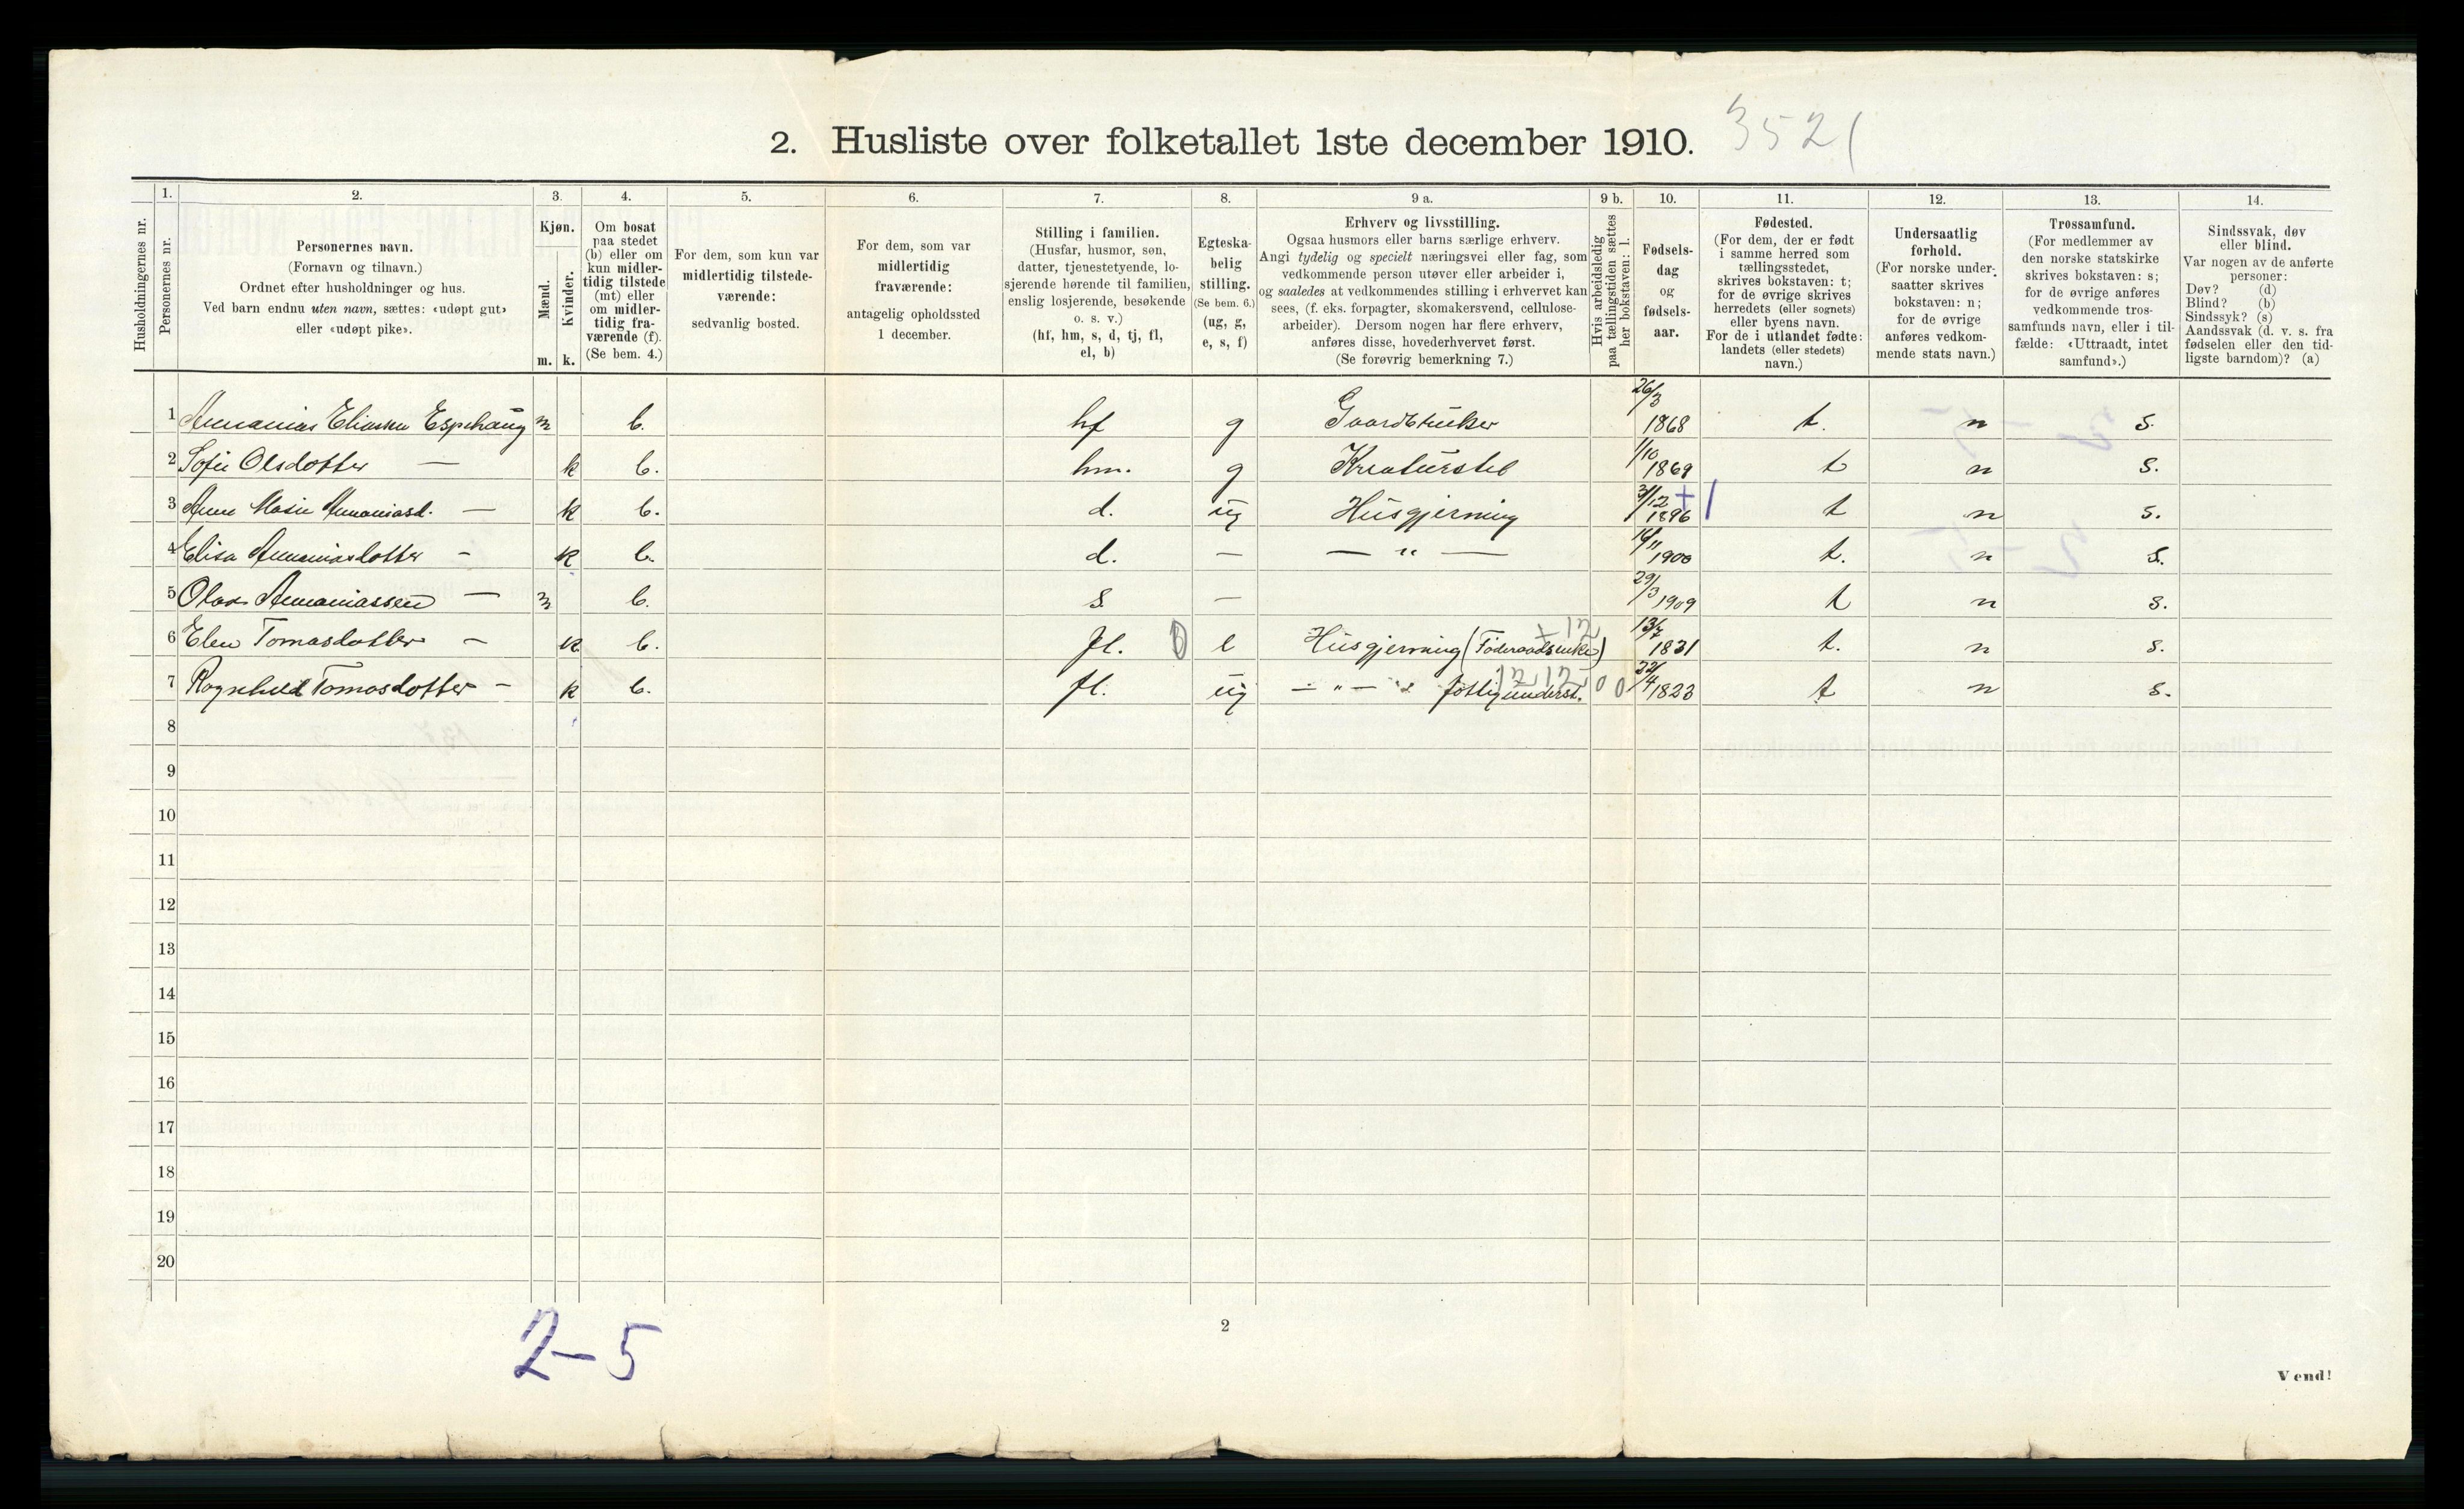 2. Husliste over folketallet 1ste december 1910. 3521
Husholdningernes nr.
1.
Personernes nr.
2.
Personernes navn.
(Fornavn og tilnavn.)
Ordnet efter husholdninger og hus.
Ved barn endnu uten navn, sættes: «udøpt gut»
eller «udøpt pike».
3.
Kjøn.
Mænd.
m.
Kvinder.
k.
4.
Om bosat
paa stedet
(b) eller om
kun midler-
tidig tilstede
(mt) eller
om midler-
tidig fra-
værende (f).
(Se bem. 4.)
5.
For dem, som kun var
midlertidig tilstede-
værende:
sedvanlig bosted.
6.
For dem, som var
midlertidig
fraværende:
antagelig opholdssted
1 december.
7.
Stilling i familien.
(Husfar, husmor, søn,
datter, tjenestetyende, lo-
sjerende hørende til familien,
enslig losjerende, besøkende
o. s. v.)
(hf, hm, s, d, tj, fl,
el, b)
8.
Egteska-
belig
stilling.
(Se bem. 6.)
(ug, g,
e, s, f)
9 a.
Erhverv og livsstilling.
Ogsaa husmors eller barns særlige erhverv.
Angi tydelig og specielt næringsvei eller fag, som
vedkommende person utøver eller arbeider i,
og saaledes at vedkommendes stilling i erhvervet kan
sees, (f. eks. forpagter, skomakersvend, cellulose-
arbeider). Dersom nogen har flere erhverv,
anføres disse, hovederhvervet først.
(Se forøvrig bemerkning 7.)
9 b.
Hvis arbeidsledig
paa tællingstiden sættes
her bokstaven: l.
10.
Fødsels-
dag
og
fødsels-
aar.
11.
Fødested.
(For dem, der er født
i samme herred som
tællingsstedet,
skrives bokstaven: t;
for de øvrige skrives
herredets (eller sognets)
eller byens navn.
For de i utlandet fødte:
landets (eller stedets)
navn.)
12.
Undersaatlig
forhold.
(For norske under-
saatter skrives
bokstaven: n;
for de øvrige
anføres vedkom-
mende stats navn.)
13.
Trossamfund.
(For medlemmer av
den norske statskirke
skrives bokstaven: s;
for de øvrige anføres
vedkommende tros-
samfunds navn, eller i til-
fælde: «Uttraadt, intet
samfund».)
14.
Sindssvak, døv
eller blind.
Var nogen av de anførte
personer:
Døv? (d)
Blind? (b)
Sindssyk? (s)
Aandssvak (d. v. s. fra
fødselen eller den tid-
ligste barndom)? (a)
1 Annanias Eliassen Espehaug m b. hf g Gaardbruker 26/3 1868 t. n s.
2 Sofie Olsdotter — k b. hm. g Kreaturstel 1/10 1869 t n s.
3 Anne Marie Annaniasd. — k b. d. ug Husgjerning 3/12 1896 +1 t n s.
4 Elisa Annaniasdotter — k b. d. — — " — 16/11 1900 t. n s.
5 Olav Annaniassen — m b. s. — 29/3 1909 t n s.
6 Elen Tomasdotter — k b. fl. 0 e Husgjerning (Føderaadsenke) + 12 13/7 1831 t. n s.
7 Ragnhild Tomasdotter — k b. fl. ug — " — fattigunderst. 12 12 0 0 22/4 1823 t n s.
8
9
10
11
12
13
14
15
16
17
18
19
20
2-5
2
Vend!